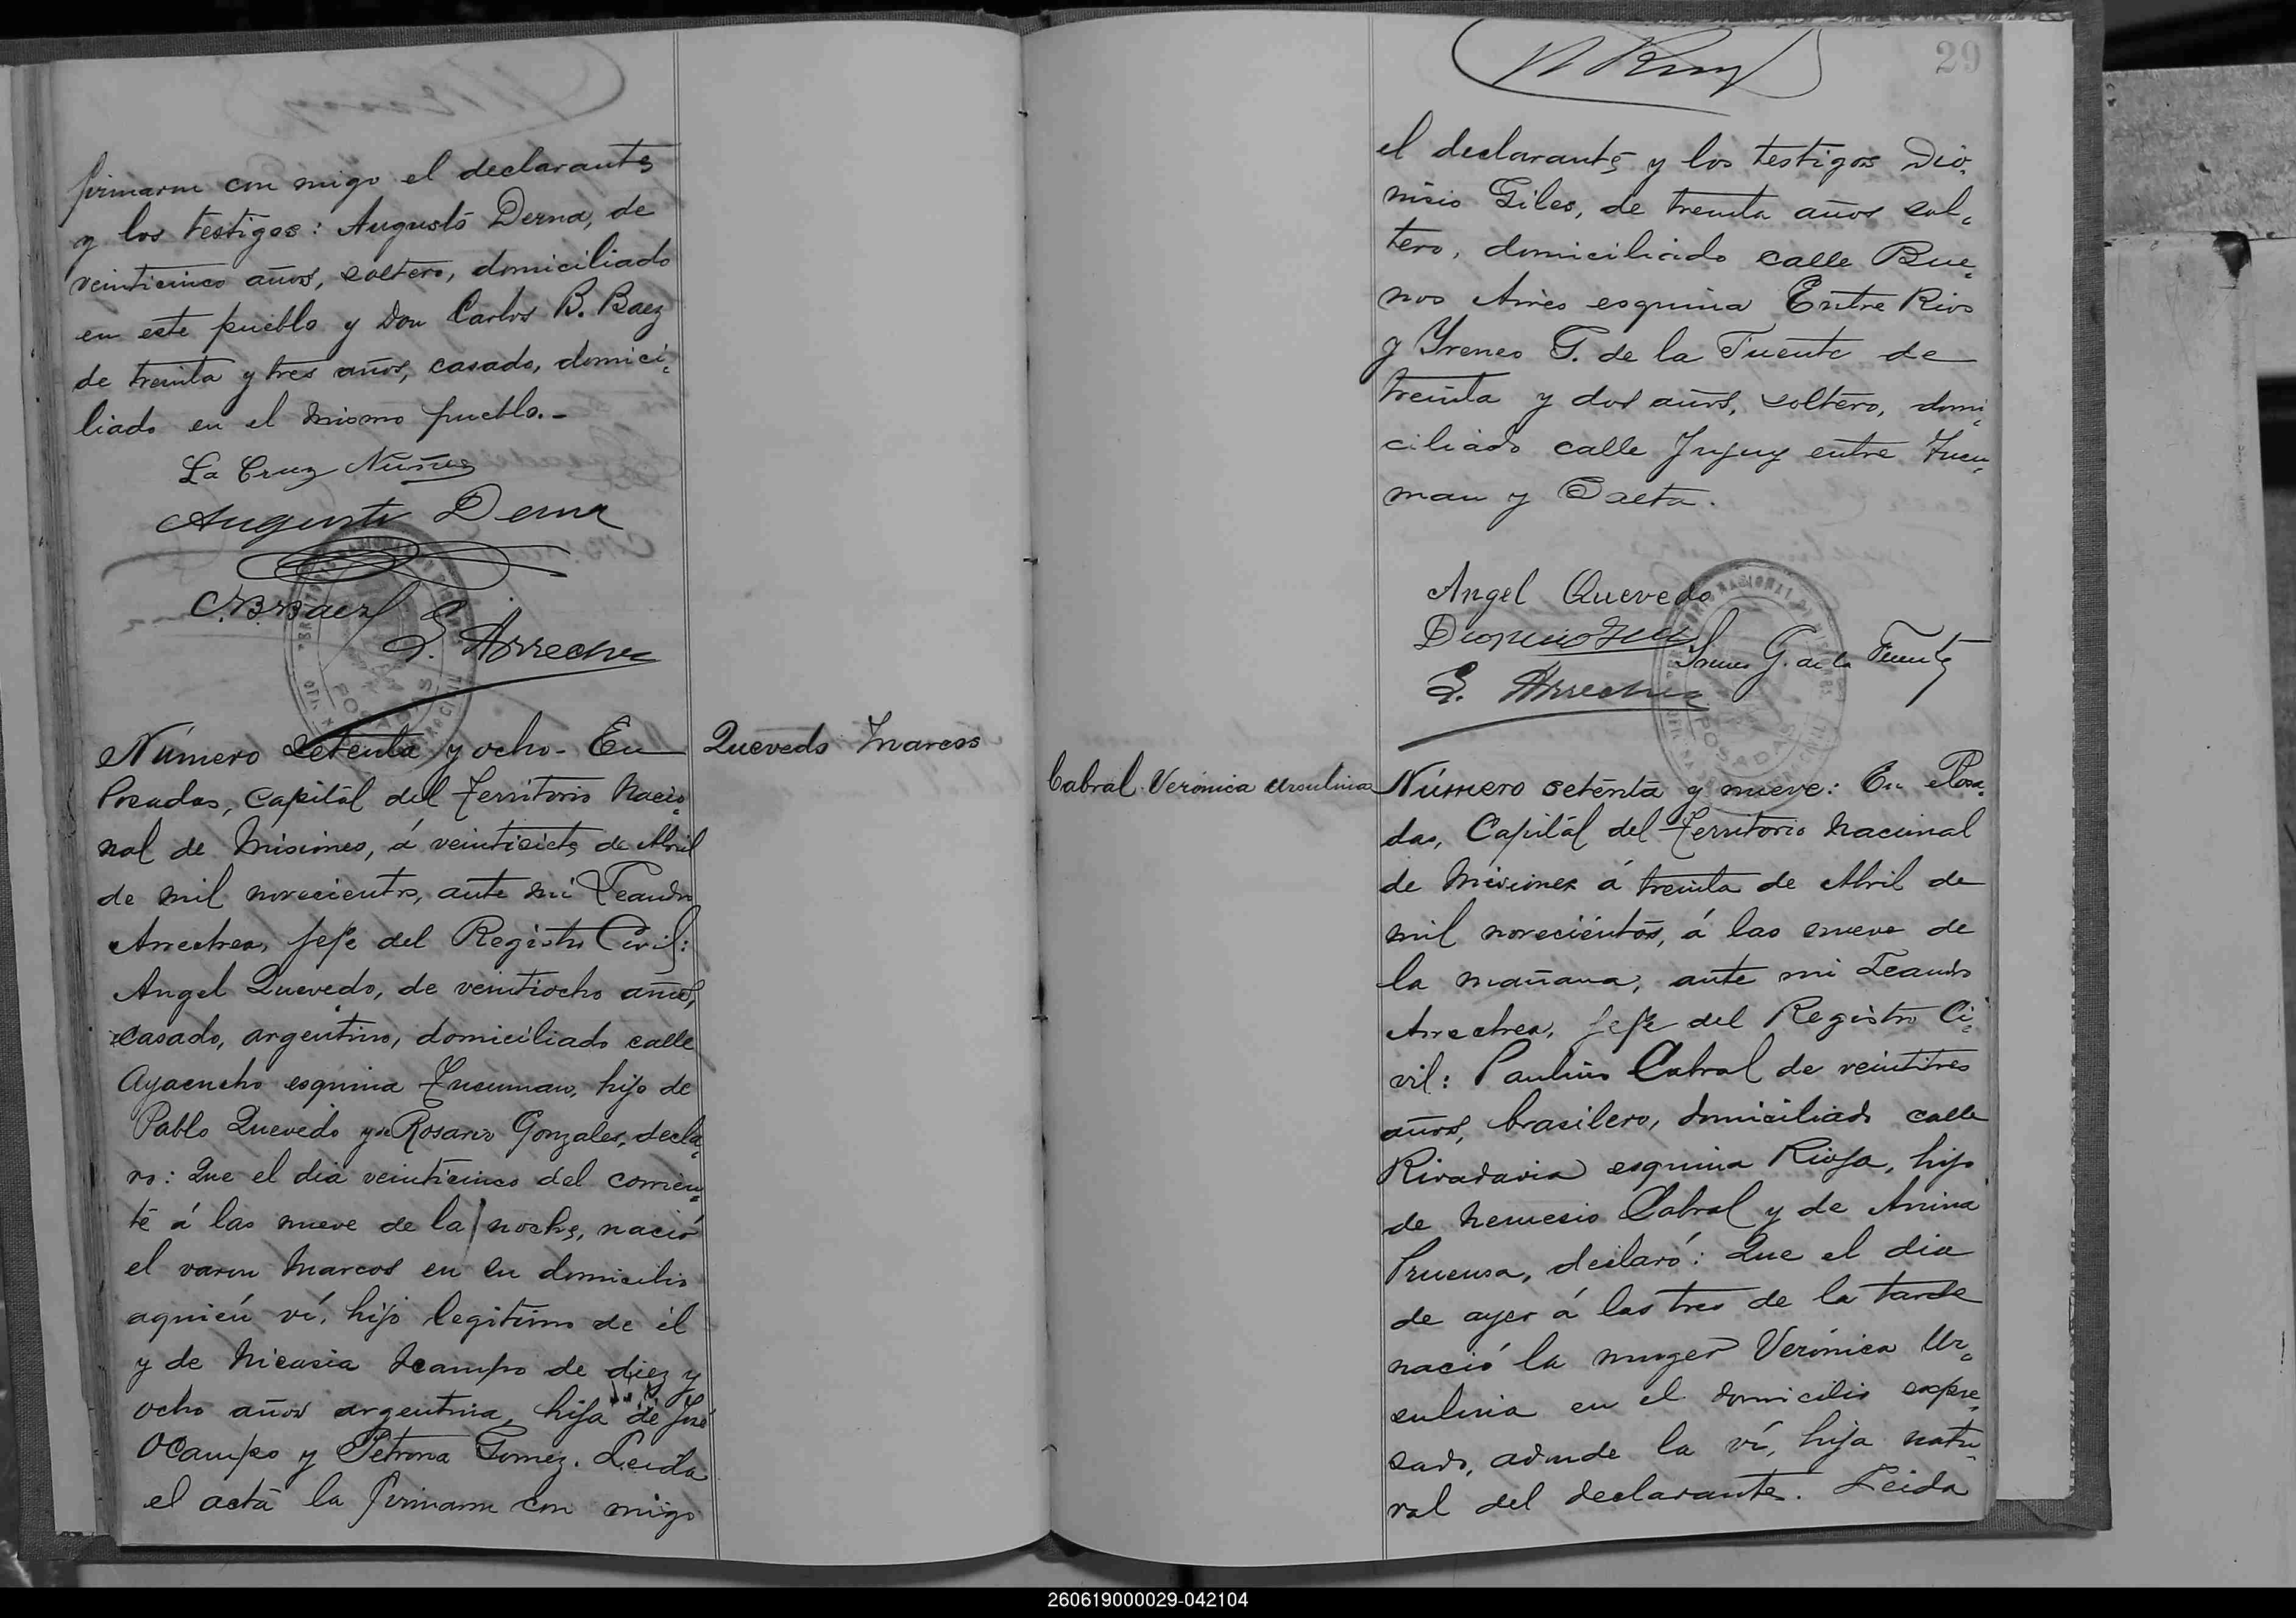 firmaron con migo el declarante
y los testigos: Augusto Derna, de
veinticinco años, soltero, domiciliado
en este pueblo y Don Carlos B. Baez
de treinta y tres años, casado, domici-
liado en el mismo pueblo.-
La Cruz Nuñes
Augusto Derna
C.B. Baez
L. Arrechea
POSADAS
Número setenta y ocho - En
Posadas, Capital del Territorio Nacio-
nal de Misiones, á veintisiete de Abril
de mil novecientos, ante mi Leandro
Arrechea, Jefe del Registro Civil:
Angel Quevedo, de veintiocho años,
casado, argentino, domiciliado calle
Ayacucho esquina Tucuman, hijo de
Pablo Quevedo y de Rosario Gonzales, decla-
ro: Que el dia veinticinco del corrien-
te á las nueve de la noche, nació
el varon Marcos en su domicilio
aquién ví, hijo legitimo de él
y de Nicasia Ocampo de diez y
ocho años argentina, hija de José
Ocampo y Petrona Gomez. Leida
el acta la firmaron con migo
Quevedo Marcos
29
el declarante y los testigos Dio-
nisio Giles, de treinta años sol-
tero, domiciliado calle Bue-
nos Aires esquina Entre Rios
y Yreneo G. de la Fuente de
treinta y dos años, soltero, domi-
ciliado calle Jujuy entre Tucu-
man y Salta.
Angel Quevedo
G. de la Fuente
L. Arrechea
POSADAS
Cabral Verónica Ursulina
Número setenta y nueve: En Posa-
das, Capital del Territorio Nacional
de Misiones á treinta de Abril de
mil novecientos, á las nueve de
la mañana, ante mi Leandro
Arrechea, Jefe del Registro Ci-
vil: Paulino Cabral de veintitres
años, brasilero, domiciliado calle
Rivadavia esquina Rioja, hijo
de Nemesio Cabral y de Anina
declaró: Que el dia
de ayer á las tres de la tarde
nació la muger Verónica Ur-
sulina en el domicilio expre-
sado, adonde la ví, hija natu-
ral del declarante. Leida
260619000029-042104